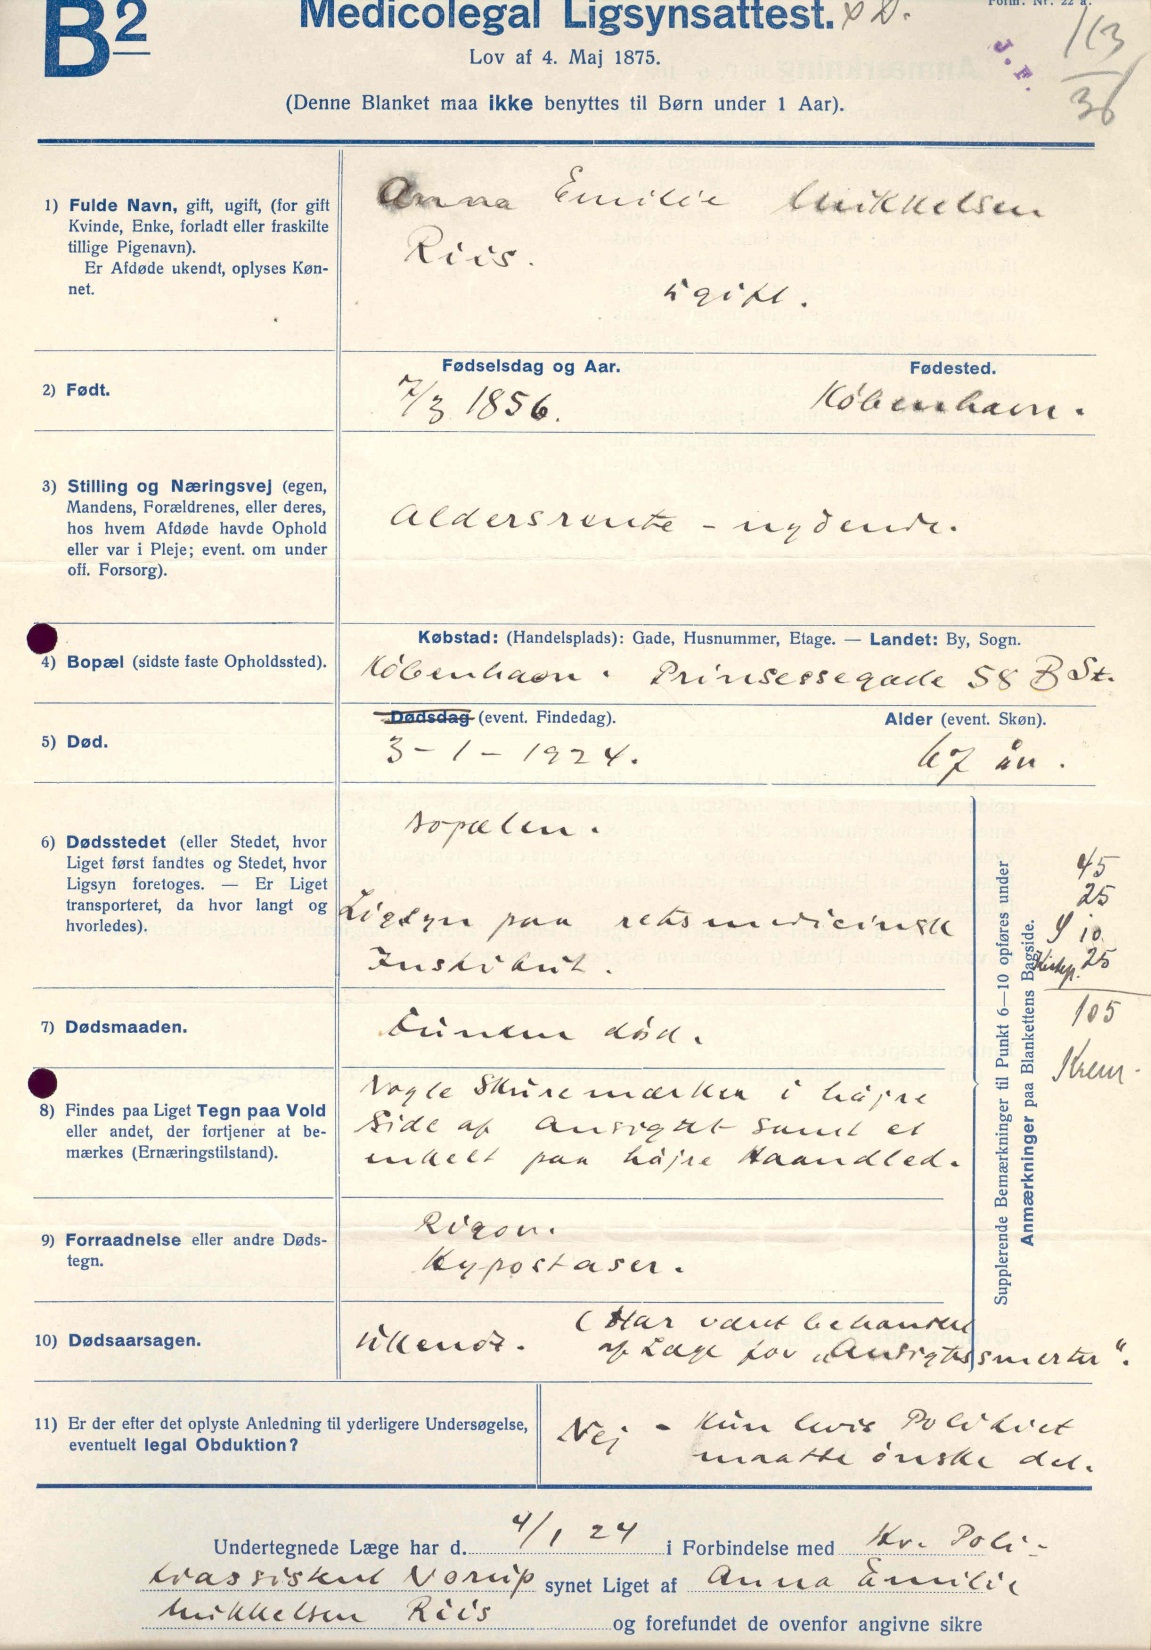 B2
Medicolegal Ligsynsattest.
Form. Nr. 22 a.
J. F.
113
36
Lov af 4. Maj 1875.
(Denne Blanket maa ikke benyttes til Børn under 1 Aar).
1) Fulde Navn, gift, ugift, (for gift
Kvinde, Enke, forladt eller fraskilte
tillige Pigenavn).
Er Afdøde ukendt, oplyses Køn-
net.
Anna Emilie Mikkelsen
Riis.
ugift.
2) Født.
Fødselsdag og Aar.
Fødested.
7/3 1856.
København.
3) Stilling og Næringsvej (egen,
Mandens, Forældrenes, eller deres,
hos hvem Afdøde havde Ophold
eller var i Pleje; event. om under
off. Forsorg).
Aldersrente - nydende.
4) Bopæl (sidste faste Opholdssted).
Købstad: (Handelsplads): Gade, Husnummer, Etage. — Landet: By, Sogn.
København. Prinsessegade 58 B St.
5) Død.
Dødsdag (event. Findedag).
Alder (event. Skøn).
3-1-1924.
67 år.
6) Dødsstedet (eller Stedet, hvor
Liget først fandtes og Stedet, hvor
Ligsyn foretoges. — Er Liget
transporteret, da hvor langt og
hvorledes).
Bopælen.
Ligsyn paa retsmedicinsk
Institut.
7) Dødsmaaden.
Funden død.
8) Findes paa Liget Tegn paa Vold
eller andet, der fortjener at be-
mærkes (Ernæringstilstand).
Nogle Skuremærker i højre
Side af Ansigtet samt et
enkelt paa højre Haandled.
9) Forraadnelse eller andre Døds-
tegn.
Rigor.
Hypostaser.
10) Dødsaarsagen.
Ukendt.
(Har været behandlet
af Læge for „Ansigtssmerter“.
Supplerende Bemærkninger til Punkt 6—10 opføres under
Anmærkninger paa Blankettens Bagside.
45
25
10
25
105
Krem.
11) Er der efter det oplyste Anledning til yderligere Undersøgelse,
eventuelt legal Obduktion?
Nej - Kun hvis Politiet
maatte ønske det.
Undertegnede Læge har d. 4/1 24 i Forbindelse med Hr. Poli-
tiassistent Norup synet Liget af Anna Emilie
Mikkelsen Riis og forefundet de ovenfor angivne sikre